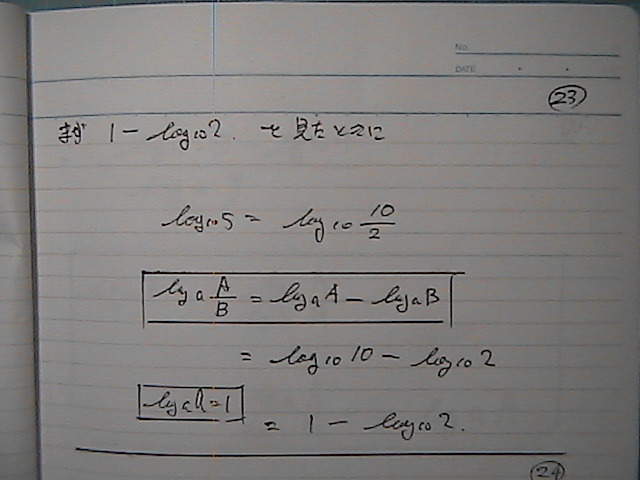 No.
DATE
23
まず 1 - log₁₀2. を見たときに
log₁₀5 = log₁₀ 10/2
logₐ A/B = logₐA - logₐB
= log₁₀10 - log₁₀2
logₐa = 1
= 1 - log₁₀2.
24